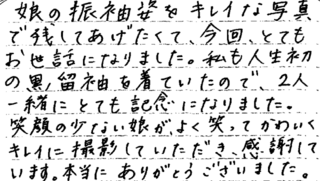 娘の振袖姿をキレイな写真
で残してあげたくて、今回、とても
お世話になりました。私も人生初
の黒留袖を着ていたので、2人
一緒にとても記念になりました。
笑顔の少ない娘がよく笑ってかわいく
キレイに撮影していただき、感謝して
います。本当にありがとうございました。